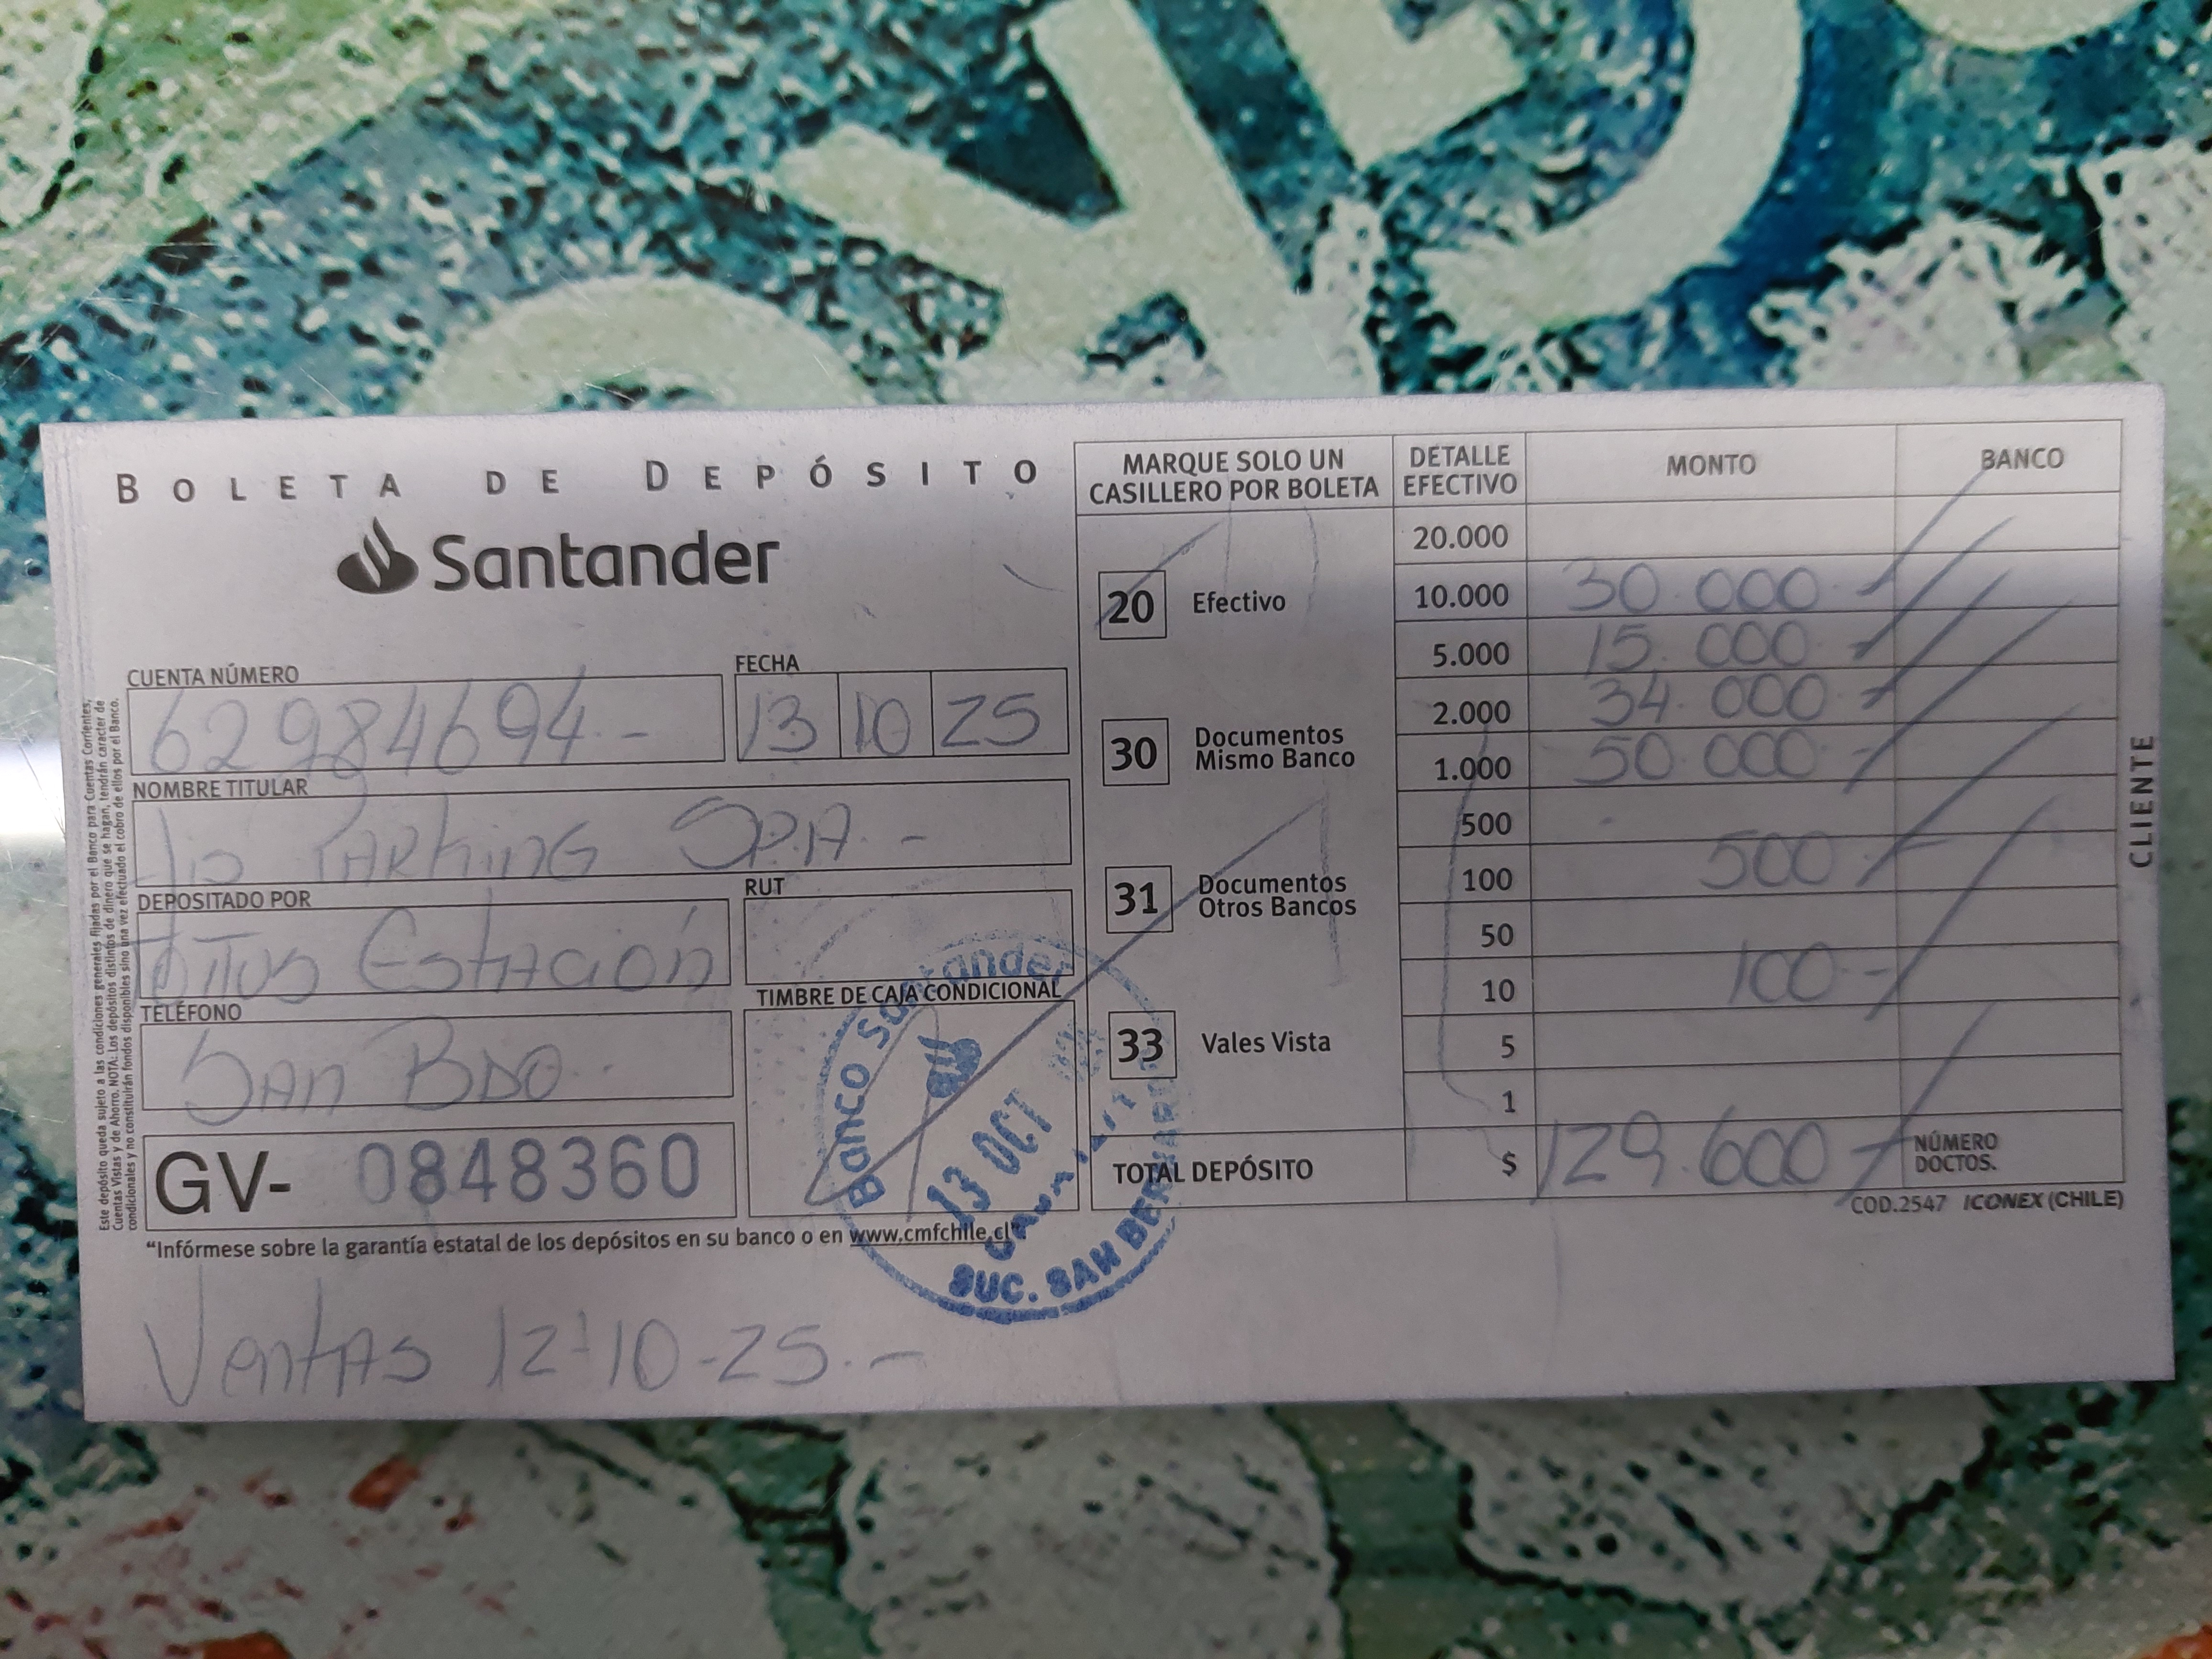 BOLETA DE DEPÓSITO
Santander
CUENTA NÚMERO
62984694.-
FECHA
13 10 25
NOMBRE TITULAR
PARKING SPA.-
DEPOSITADO POR
TITUS ESTACIÓN
RUT
TELÉFONO
SAN BDO.
TIMBRE DE CAJA CONDICIONAL
GV- 0848360
"Infórmese sobre la garantía estatal de los depósitos en su banco o en www.cmfchile.cl"
Ventas 12-10-25.-
Este depósito queda sujeto a las condiciones generales fijadas por el Banco para Cuentas Corrientes,
Cuentas Vistas y de Ahorro. NOTA: Los depósitos distintos de dinero que se hagan, tendrán carácter de
condicionales y no constituirán fondos disponibles sino una vez efectuado el cobro de ellos por el Banco.
MARQUE SOLO UN
CASILLERO POR BOLETA
20 Efectivo
30 Documentos
Mismo Banco
31 Documentos
Otros Bancos
33 Vales Vista
DETALLE
EFECTIVO
MONTO
BANCO
20.000
10.000 30.000.-
5.000 15.000.-
2.000 34.000.-
1.000 50.000.-
500
100 500.-
50
10 100.-
5
1
TOTAL DEPÓSITO $ 129.600.-
NÚMERO
DOCTOS.
COD.2547 ICONEX (CHILE)
CLIENTE
Banco Santander
13 OCT
SUC. SAN BERNARDO